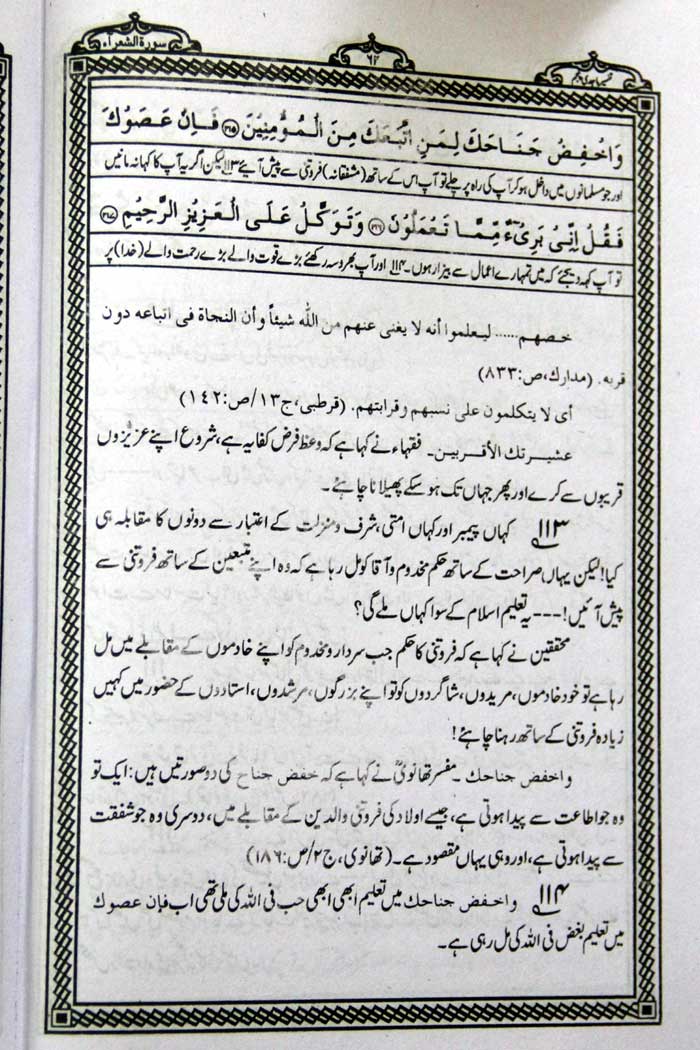 سورة الشعرآء
وَاخْفِضْ جَنَاحَكَ لِمَنِ اتَّبَعَكَ مِنَ الْمُؤْمِنِيْنَ ﴿٢١٥﴾ فَاِنْ عَصَوْكَ
اور جو مسلمانوں میں داخل ہو کر آپ کی راہ پر چلے تو آپ اس کے ساتھ (مشفقانہ) فروتنی سے پیش آیئے ۱۱۳ لیکن اگر یہ آپ کا کہا نہ مانیں
فَقُلْ اِنِّىْ بَرِىْٓءٌ مِّمَّا تَعْمَلُوْنَ ﴿٢١٦﴾ وَتَوَكَّلْ عَلَى الْعَزِيْزِ الرَّحِيْمِ ﴿٢١٧﴾
تو آپ کہہ دیجئے کہ میں تمہارے اعمال سے بیزار ہوں۔ ۱۱۴ اور آپ بھروسہ رکھئے بڑے قوت والے بڑے رحمت والے (خدا) پر
خصهم...... ليعلموا أنه لا يغنى عنهم من الله شيئاً وأن النجاة فى اتباعه دون
قربه. (مدارك،ص:٨٣٣)
أى لا يتكلمون على نسبهم وقرابتهم. (قرطبى،ج١٣/ص:١٤٢)
عشيرتك الأقربين۔ فقہاء نے کہا ہے کہ وعظ فرض کفایہ ہے، شروع اپنے عزیزوں
قریبوں سے کرے اور پھر جہاں تک ہو سکے پھیلانا چاہئے۔
۱۱۳ کہاں پیمبر اور کہاں امتی، شرف و منزلت کے اعتبار سے دونوں کا مقابلہ ہی
کیا! لیکن یہاں صراحت کے ساتھ حکم مخدوم و آقا کو مل رہا ہے کہ وہ اپنے متبعین کے ساتھ فروتنی سے
پیش آئیں! --- یہ تعلیم اسلام کے سوا کہاں ملے گی؟
محققین نے کہا ہے کہ فروتنی کا حکم جب سردار و مخدوم کو اپنے خادموں کے مقابلے میں مل
رہا ہے تو خود خادموں، مریدوں، شاگردوں کو تو اپنے بزرگوں، مرشدوں، استادوں کے حضور میں کہیں
زیادہ فروتنی کے ساتھ رہنا چاہئے!
واخفض جناحك ۔ مفسر تھانویؒ نے کہا ہے کہ خفض جناح کی دو صورتیں ہیں: ایک تو
وہ جو اطاعت سے پیدا ہوتی ہے، جیسے اولاد کی فروتنی والدین کے مقابلے میں، دوسری وہ جو شفقت
سے پیدا ہوتی ہے، اور وہی یہاں مقصود ہے۔ (تھانوی، ج۲/ص:۱۸۶)
۱۱۴ واخفض جناحك میں تعلیم ابھی ابھی حب فی اللہ کی ملی تھی اب فإن عصوك
میں تعلیم بغض فی اللہ کی مل رہی ہے۔